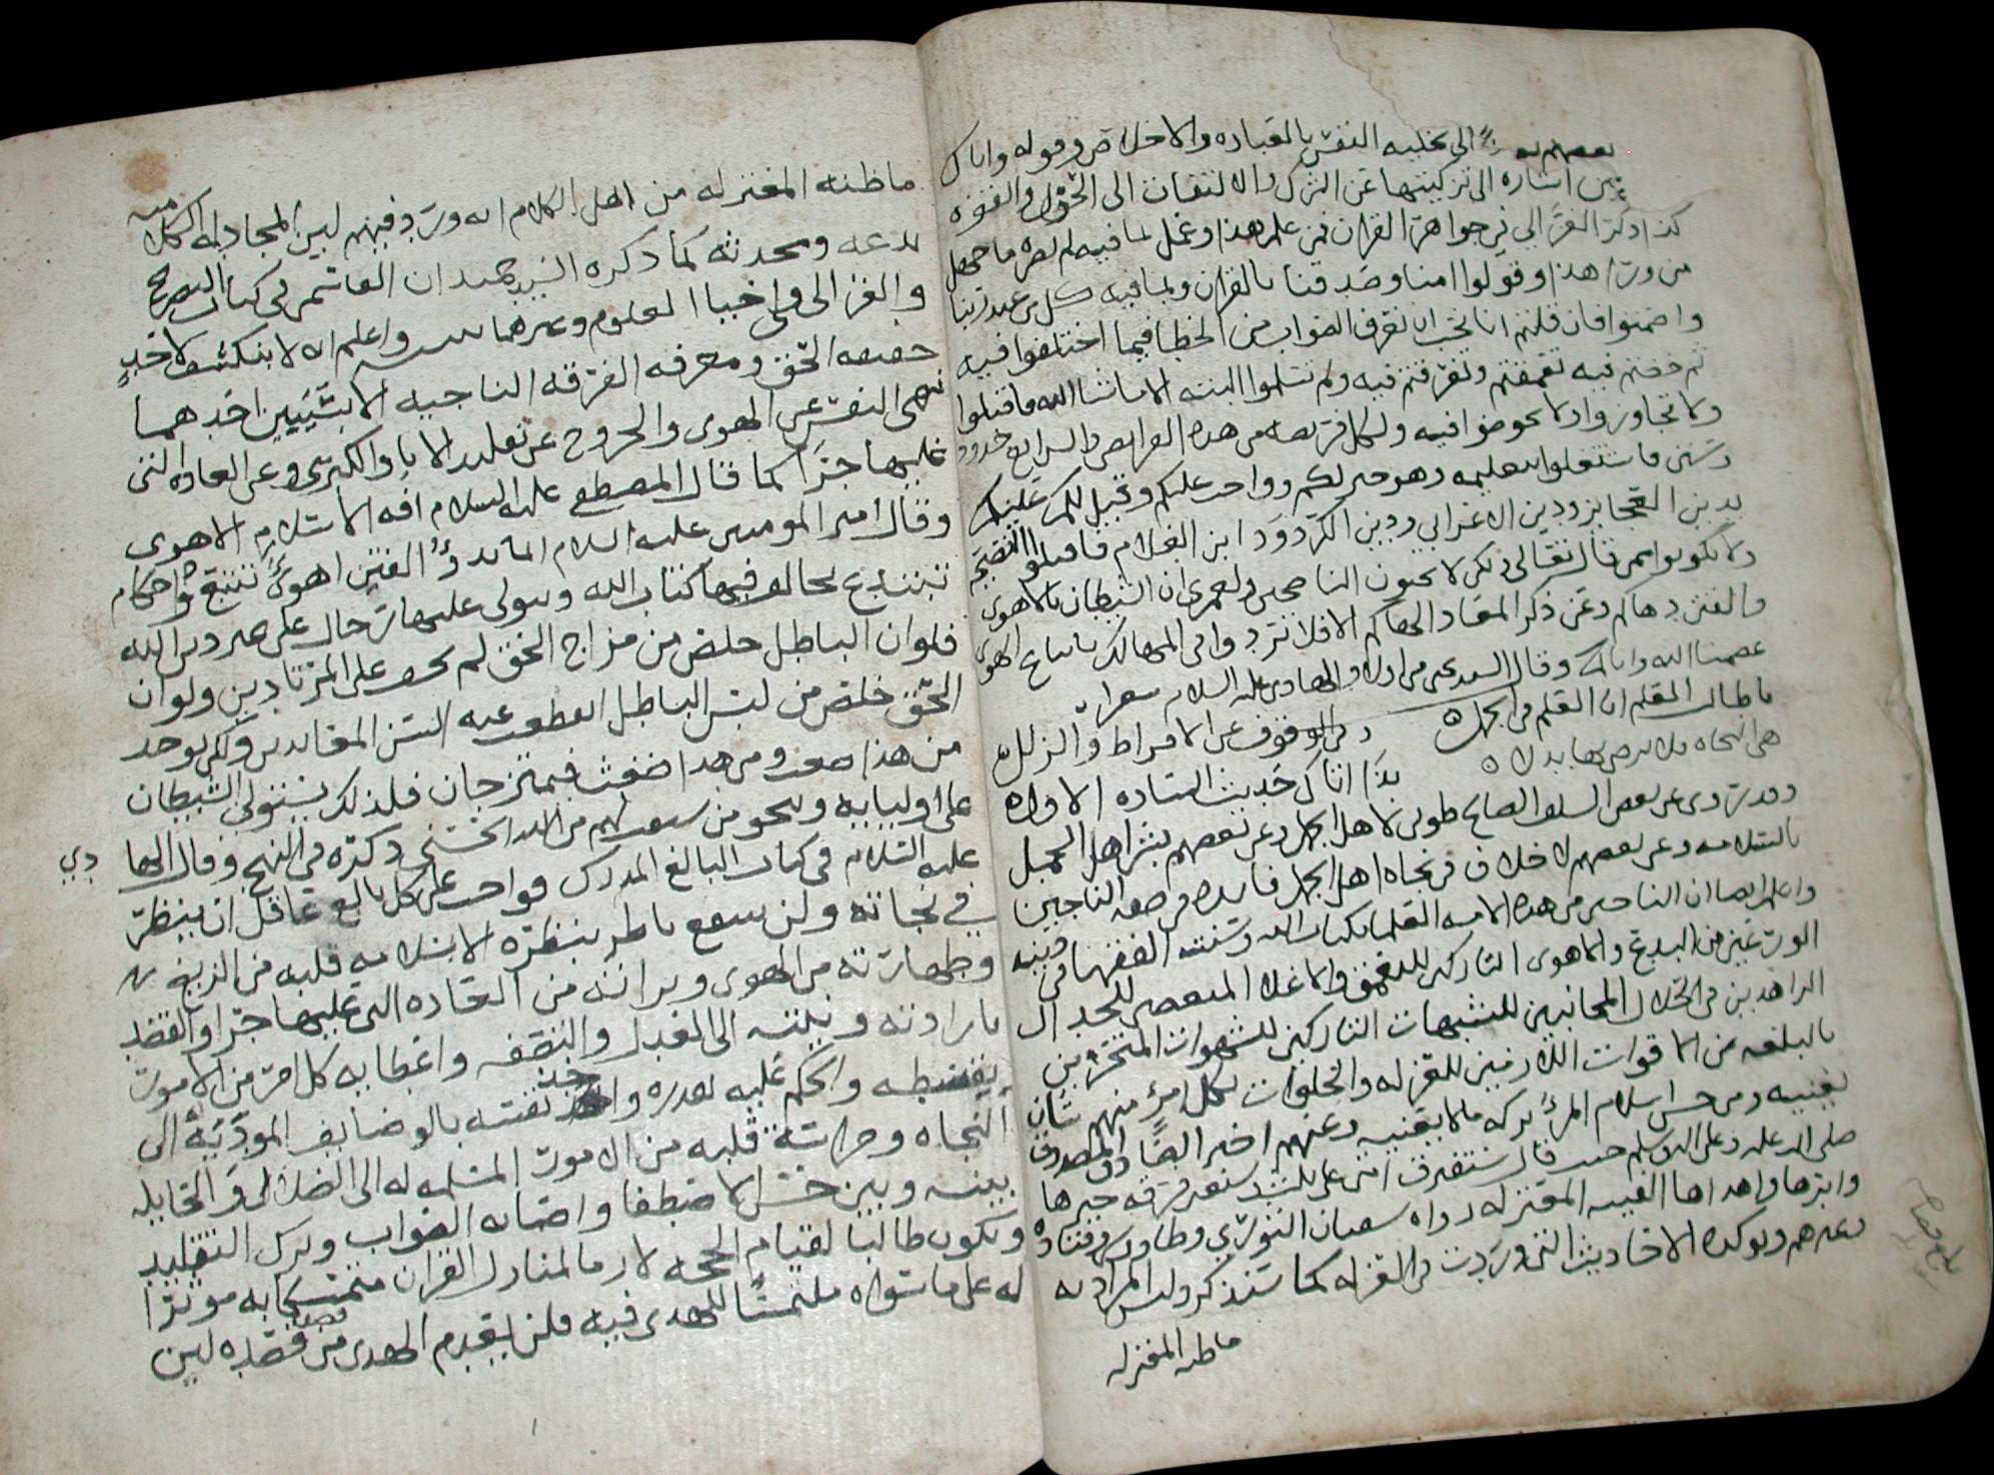 الى تحليه النفس بالعباده والاخلاص وقوله واياك
نستعين اشاره الى تزكيتها عن الشرك والالتفات الى الحول والقوه
كذا ذكر الغزالي في جواهر القران فمن علم هذا وعمل بما فيه لم يضره ما جهل
من ورا هذا وقولوا امنا وصدقنا بالقران وبما فيه كل من عند ربنا
واصمتوا فان قلتم انا نحب ان نعرف الصواب من الخطا فيما اختلفوا فيه
ثم خضتم فيه تعمقتم وتفرقتم فيه ولم تسلموا البته الا ما شا الله فاقبلوا
ولا تجاوزوا ولا تخوضوا فيه ولكل فريضه من هذه الفرايض والشرايع حدود
وسنن فاشتغلوا بتعليمه وهو خير لكم وواجب عليكم وقيل لكم عليكم
بدين العجايز ودين الاعرابي ودين الكردود ابن الغلام فاقبلوا النصح
ولا تكونوا ممن قال تعالى ولكن لا تحبون الناصحين ولعمري ان الشيطان بالاهوى
والفتن دهاكم وعن ذكر المعاد الهاكم الا فلا تتردوا في المهالك باتباع الهوى
عصمنا الله واياكم وقال السيد يحيى من اولاد الهادي عليه السلام شعرا
يا طالب العلم ان العلم في الجمل وفي الوقوف عن الافراط والزلل
هي النجاه فلا ترضى بها بدلا بذا اتاك حديث الساده الاول
وقد روى عن بعض السلف الصالح طوبى لاهل الجمل وعن بعضهم بشر اهل الجمل
بالسلامه وعن بعضهم لا خلاف في نجاه اهل الجمل فايده في صفه الناجين
واعلم ايضا ان الناجي من هذه الامه العلما بكتاب الله وسنته الفقها في دينه
الورعين من البدع والاهوى التاركين للتعمق والاغلا المبغضين للجدال
الزاهدين في الحلال المجانبين للشبهات التاركين للشهوات المتحرين
بالبلغه من الاقوات اللازمين للعزله والخلوات لكل امرئ منهم شان
يغنيه ومن حسن اسلام المرء تركه ما لا يعنيه وعنهم اخبر الصادق المصدوق
صلى الله عليه وعلى اله وسلم حيث قال ستفترق امتي على بضع وسبعين فرقه خيرها
وابرها واهداها الفئه المعتزله رواه سفيان الثوري وطاوس وقتاده
وغيرهم ويوكده الاحاديث التي وردت في العزله كما ستذكر وليس المراد به
ما ظنه المعتزله
ما ظنه المعتزله من اهل الكلام انه ورد فيهم ليس المجادله الكلاميه
بدعه ومحدثه كما ذكره السيد حميدان القاسمي في كتاب التصريح
والغزالي في احيا العلوم وغيرهما واعلم انه لا ينكشف لاحد
حقيقه الحق ومعرفه الفرقه الناجيه الا بشيين احدهما
نهى النفس عن الهوى والخروج عن تقليد الابا والكبرى وعن العاده التي
عليها جرا كما قال المصطفى عليه السلام افه الاسلام الاهوى
وقال امير المومنين عليه السلام انما بدؤ الفتن اهوى تتبع واحكام
تبتدع يخالف فيها كتاب الله ويتولى عليها رجال على غير دين الله
فلو ان الباطل خلص من مزاج الحق لم يخف على المرتادين ولو ان
الحق خلص من لبس الباطل انقطعت عنه السن المعاندين ولكن يوخذ
من هذا ضغث ومن هذا ضغث فيمتزجان فلذلك يستولي الشيطان
على اوليايه وينجو من سبقت لهم من الله الحسنى ذكره في النهج وقال الهادي
عليه السلام في كتاب البالغ المدرك فواجب على كل بالغ عاقل ان ينظر
في نجاته ولن ينتفع ناظر بنظره الا بسلامه قلبه من الزيغ
وطهارته من الهوى وبراءته من العاده التي عليها جرا والقصد
بارادته ونيته الى العدل والنصفه واعطايه كل امر من الامور
بقسطه والحكم عليه بقدره واخذ نفسه بالوضايف المودية الى
النجاه وحراسة قلبه من الامور المسلمه له الى الضلال والحايله
بينه وبين حسن الاصطفا واصابه الصواب وترك التقليد
ويكون طالبا لقيام الحجه لازما لمنار القران متمسكا به موثرا
له على ما سواه ملتمسا للهدى فيه فلن يعدم الهدى من قصده لين